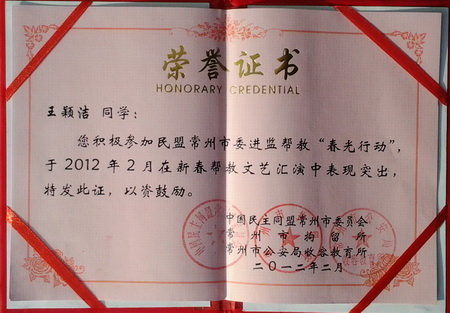 荣誉证书
HONORARY CREDENTIAL
王颖洁 同学：
您积极参加民盟常州市委进监帮教“春光行动”，
于2012年2月在新春帮教文艺汇演中表现突出，
特发此证，以资鼓励。
中国民主同盟常州市委员会
常州市拘留所
常州市公安局收容教育所
二〇一二年二月